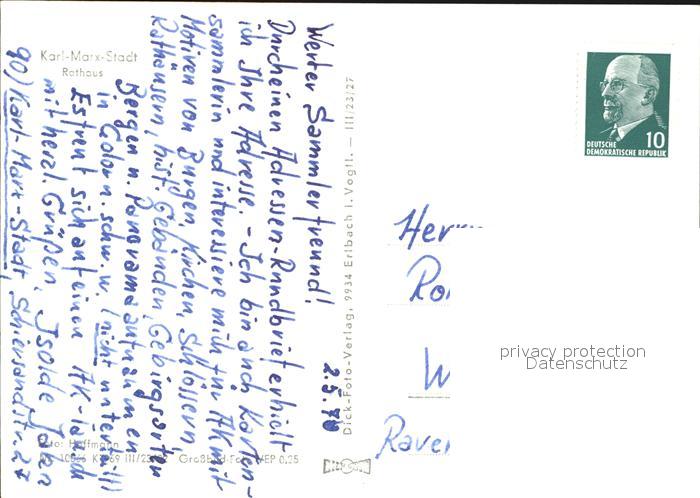 Karl-Marx-Stadt
Rathaus
2.5.70
Werter Sammlerfreund!
Durch einen Adressen-Rundbrief erhielt
ich Ihre Adresse. – Ich bin auch Karten-
sammlerin und interessiere mich für AK mit
Motiven von Burgen, Kirchen, Schlössern
Rathäusern, hist. Gebäuden, Gebirgsorten
Bergen u. Panoramaaufnahmen
in Color u. schw. w. (nicht unterteilt)
Es freut sich auf einen AK-Tausch
mit herzl. Grüßen, Isolde
90) Karl-Marx-Stadt, str. 27
Foto: Hoffmann
III/23/27 Großbild-Foto VEP 0,25
Dick-Foto-Verlag, 9934 Erlbach i. Vogtl. — III/23/27
DEUTSCHE
DEMOKRATISCHE REPUBLIK
10
Herrn
Ro
W
Raven
privacy protection
Datenschutz